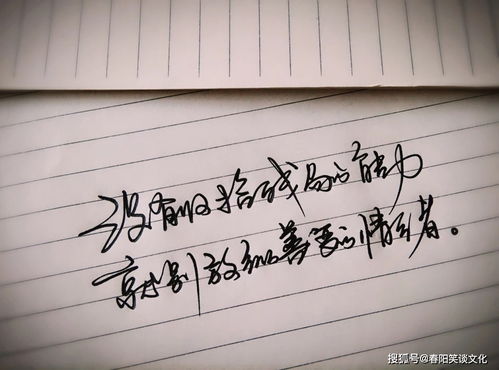 没有收拾残局的能力
就别放纵善变的情绪。
搜狐号@春阳笑谈文化